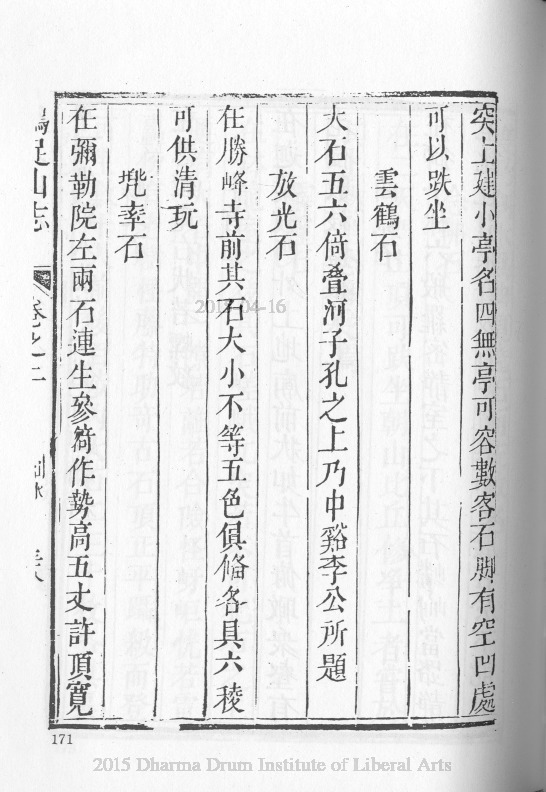 突上建小亭名四無亭可容數客石脚有空凹處
可以趺坐
雲鶴石
大石五六倚疊河子孔之上乃中谿李公所題
放光石
在勝峰寺前其石大小不等五色俱備各具六稜
可供清玩
兠率石
在彌勒院左兩石連生參笴作勢高五丈許頂寬
足山志
卷之二
171
2015-04-16
2015 Dharma Drum Institute of Liberal Arts